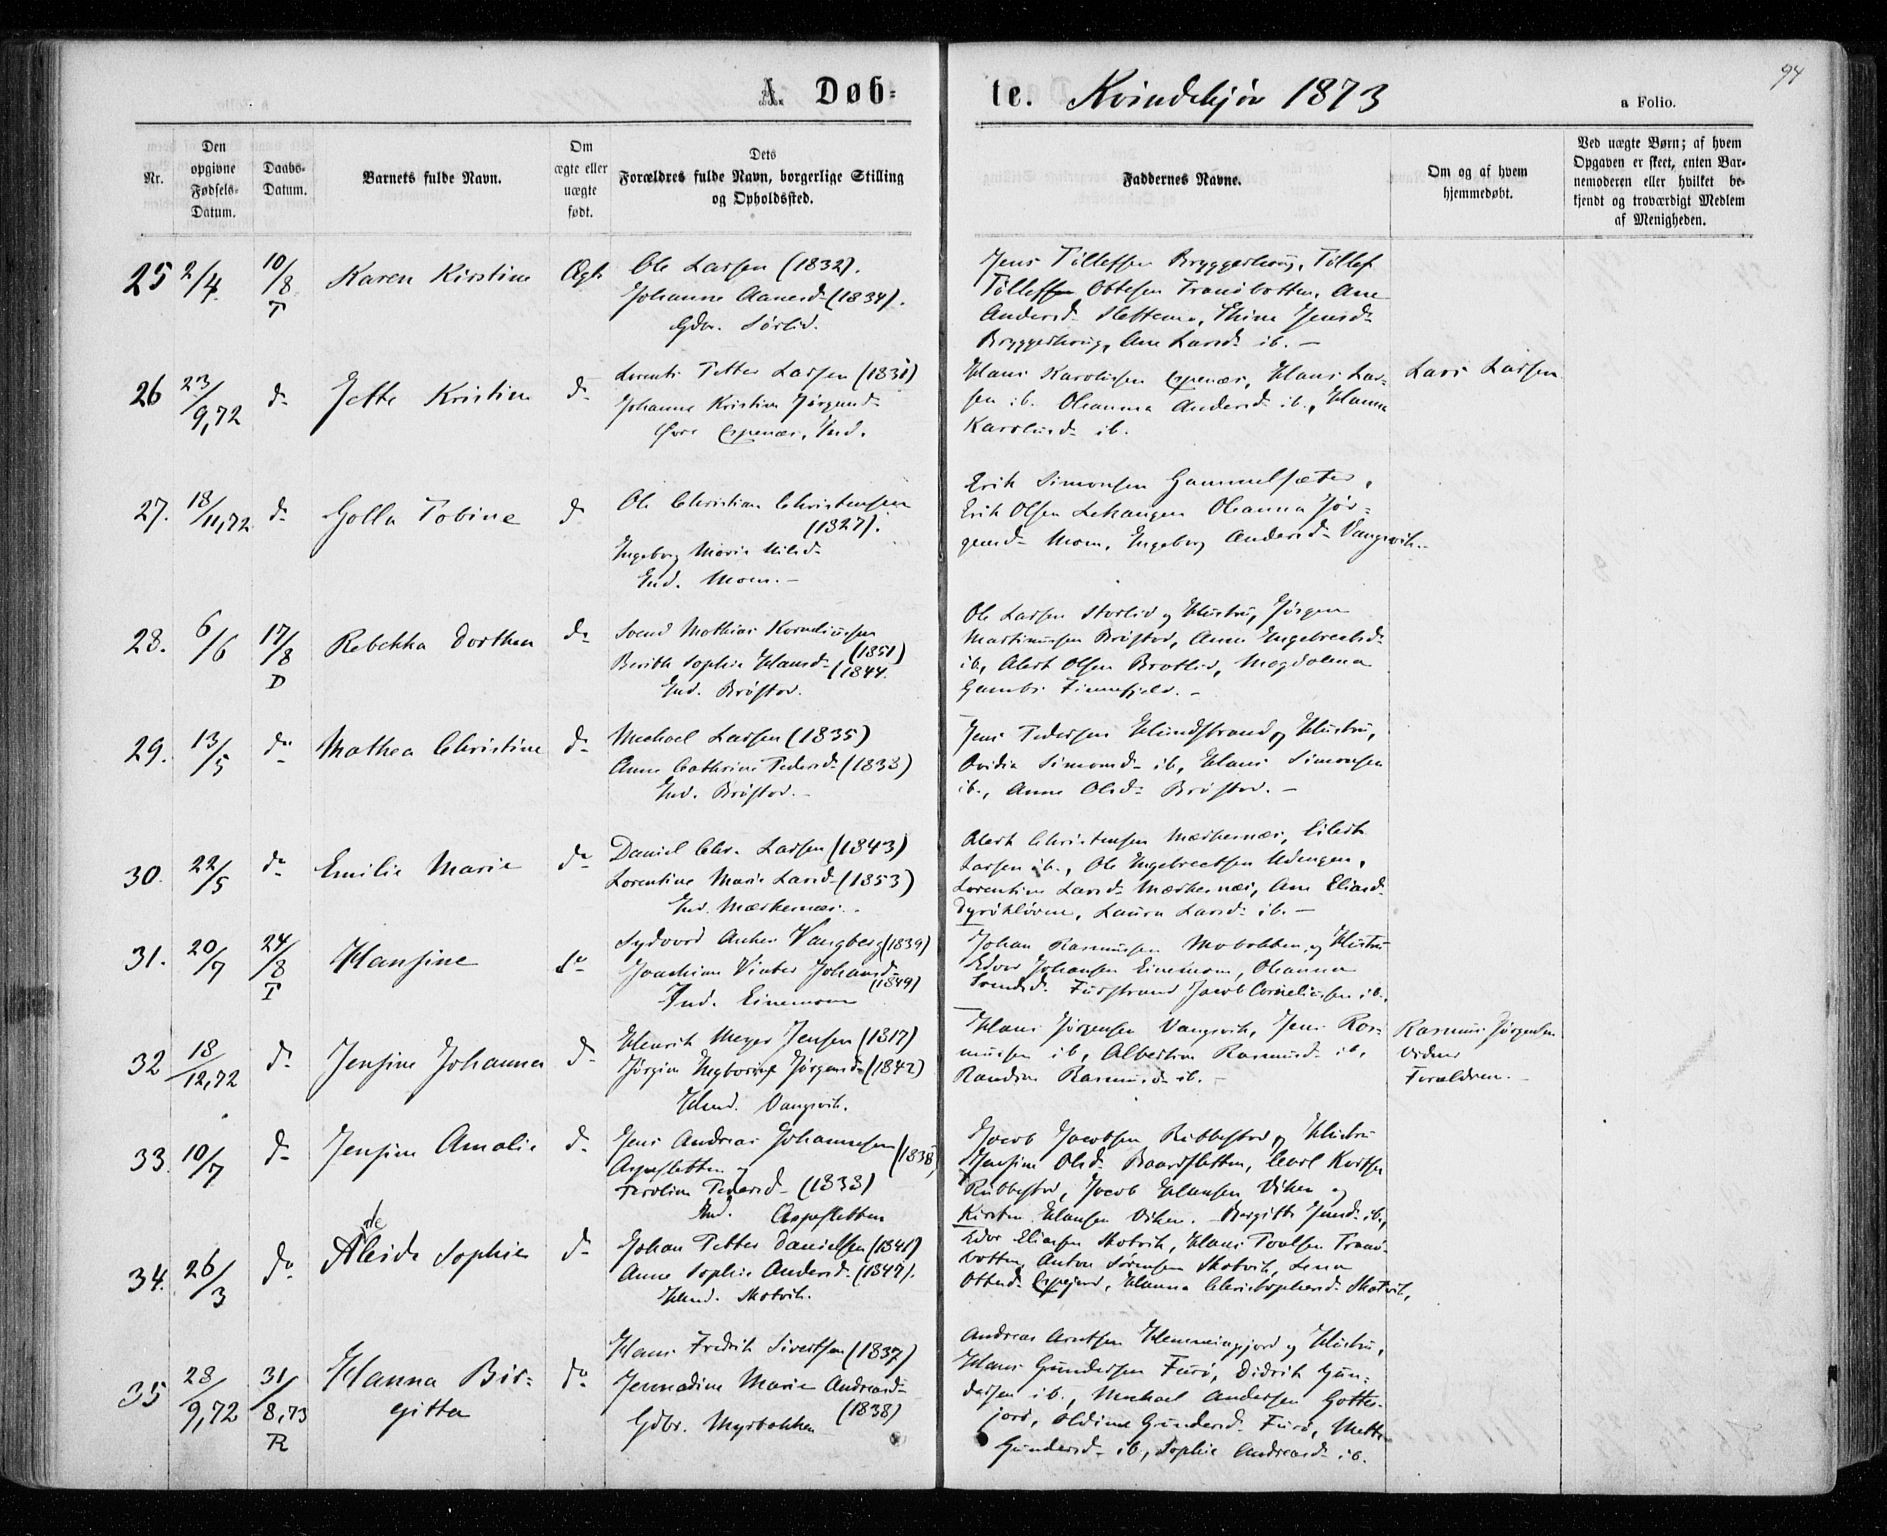 94
A. Døb-
te. Kvindekjøn 1873
a Folio.
Nr.
Den opgivne Fødsels-Datum.
Daabs-Datum.
Barnets fulde Navn.
Om ægte eller uægte født.
Dets Forældres fulde Navn, borgerlige Stilling og Opholdssted.
Faddernes Navne.
Om og af hvem hjemmedøbt.
Ved uægte Børn; af hvem Opgaven er skeet, enten Barnemoderen eller hvilket bekjendt og troværdigt Medlem af Menigheden.
25 2/4 10/8 T Karen Kirstine Ægte
Ole Larsen (1832).
Johanne Aanesd- (1834).
Gdbr. Sørlid.
Jens Tollefsen Bryggerhoug, Tollef
Tollefsen Ottesen Tranøbotten, Ane
Andersd- Slettemo, Jensd-
Bryggerhoug, Ane Larsd- ib. -
26 23/9,72 d- Jette Kristine d-
Lorents Petter Larsen (1831)
Johanne Kristine Jørgensd-
Espenæs, Ind.
Hans Karoliusen Espenæs, Hans Lar-
sen ib. Oleanna Andersd- ib., Hanna
Karolusd- ib.
Lars Larsen
27. 18/11,72 d- Golla Tobine d-
Ole Christian Christensen
(1827).
Ingeborg Marie Nilsd-
Ind. Moen. -
Erik Simonsen Gammelsæter,
Erik Olsen Lekangen Oleanna Jør-
gensd- Moen, Ingeborg Andersd- Vangsvik. -
28. 6/6 17/8 D Rebekka Dorthea do
Svend Mathias Korneliussen
(1851)
Berith Sophie Hansd- (1844.
Ind. Brøstad.
Ole Larsen Storlid og Hustru, Jørgen
Martinussen Brøstad, Anne Engebrectsd-
ib., Olert Olsen Bratlid, Magdalena
Finnefjeld. -
29. 13/5 do Mathea Christine d-
Mechael Larsen (1835)
Anne Cathrine Pedersd- (1833)
Ind. Brøstad. -
Jens Pedersen Hundstrand og Hustru,
Ovidia Simonsd- ib, Hans Simonsen
ib., Anne Olsd- Brøstad. -
30. 22/5 do Emilie Marie do
Daniel Chr. Larsen (1843)
Lorentine Marie Larsd- (1853)
Ind. Mærkenæs.
Olert Christensen Mærkenæs, Eilert
Larsen ib., Ole Engebrectsen Udengen,
Lorentine Larsd- Mærkenæs, Ane Eliasd-
Dyrökløven, Laura Larsd- ib. -
31. 20/7 24/8 T Hansine do
Sydvard Anker Vangberg (1839)
Joachime Vinter Johansd-
(1849)
Ind. Einemoen
Johan Rasmussen Mobakken og Hustru
Edvar Johansen Einemoen, Oleanna
Svendsd. Furstrand Jacob Corneliussen ib.
32 18/12,72 d- Jensine Johanna d-
Henrik Meyer Jensen (1817)
Jørgine Ingborine Jørgensd- (1842)
Ind. Vangsvik.
Hans Jørgensen Vangsvik, Jens Ras-
mussen ib, Albertine Rasmusd- ib,
Randine Rasmusd- ib. -
Rasmus Jørgensen
Vidner
Forældren. -
33. 10/7 d- Jensine Amalie d-
Jens Andreas Johannesen (1838)
Aspesletten og
Karoline Pedersd- (1833)
Ind. Aspesletten
Jacob Jacobsen Rubbestad og Hustru
Jensine Olsd- Baardsletten, Carl
Rubbestad, Jacob Hansen Viken og
Kirsten Hansen Viken. Bergitte Jensd- ib,
34. 26/3 do Aleide Sophie d-
Johan Petter Danielsen (1841)
Anne Sophie Andersd- (1847).
Ind. Skatvik.
Edvr Eliassen Skatvik, Hans Poulsen Tranø-
botten, Anton Sørensen Skatvik, Lena
Ottesd- Espejord, Hanna Christophersd- Skatvik,
35 28/9,72 31/8,73 R Hanna Bir-
gitta do
Hans Fredrik Sivertsen (1837)
Jennadine Marie Andreasd-
(1838)
Gdbr. Myrbakken
Andreas Arntsen Hemmingsjord og Hustru,
Hans Gundersen Furø, Didrik Gun-
dersen ib., Mechael Andersen Gottes-
jord, Oldine Gundersd- Furø, Mette
Gundersd- ib, Sophie Andreasd- ib.